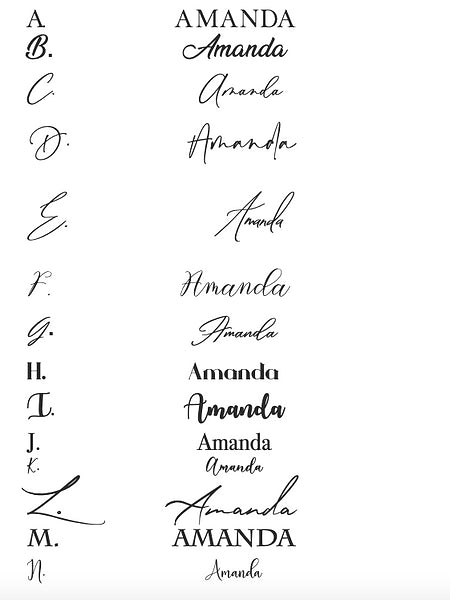 A. AMANDA
B. Amanda
C. Amanda
D. Amanda
E. Amanda
F. Amanda
G. Amanda
H. Amanda
I. Amanda
J. Amanda
K. Amanda
L. Amanda
M. AMANDA
N. Amanda